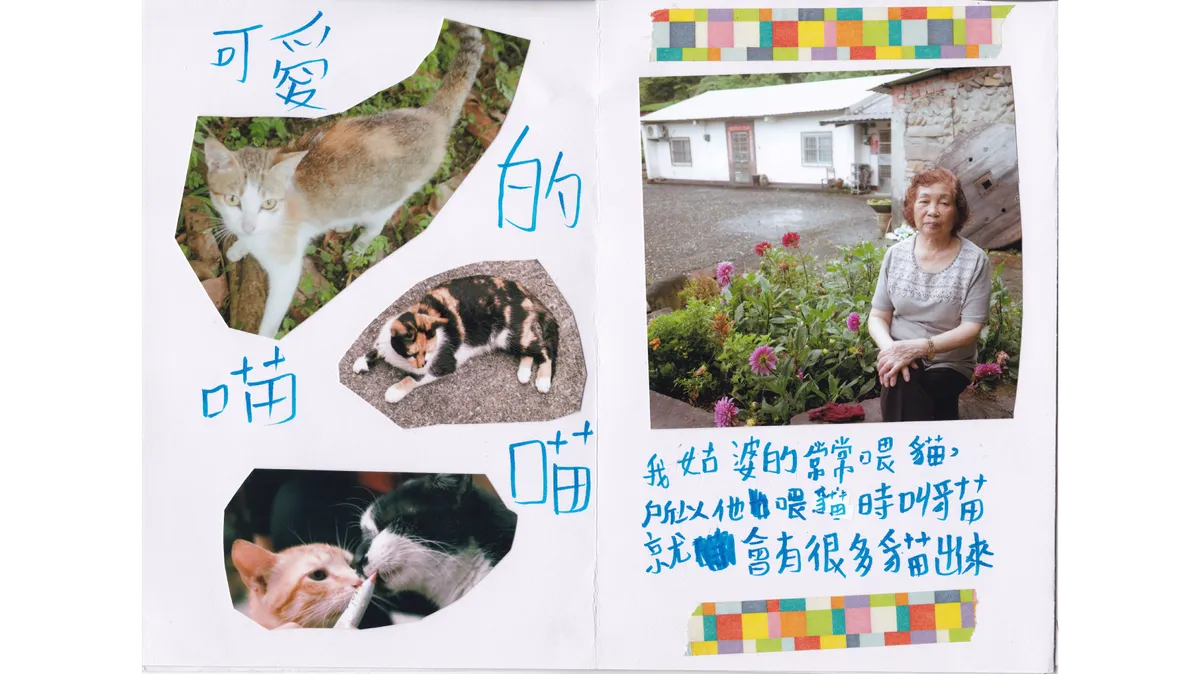 可愛
的
喵
喵
我姑婆的常常喂貓，
所以他喂貓時叫貓
就會有很多貓出來